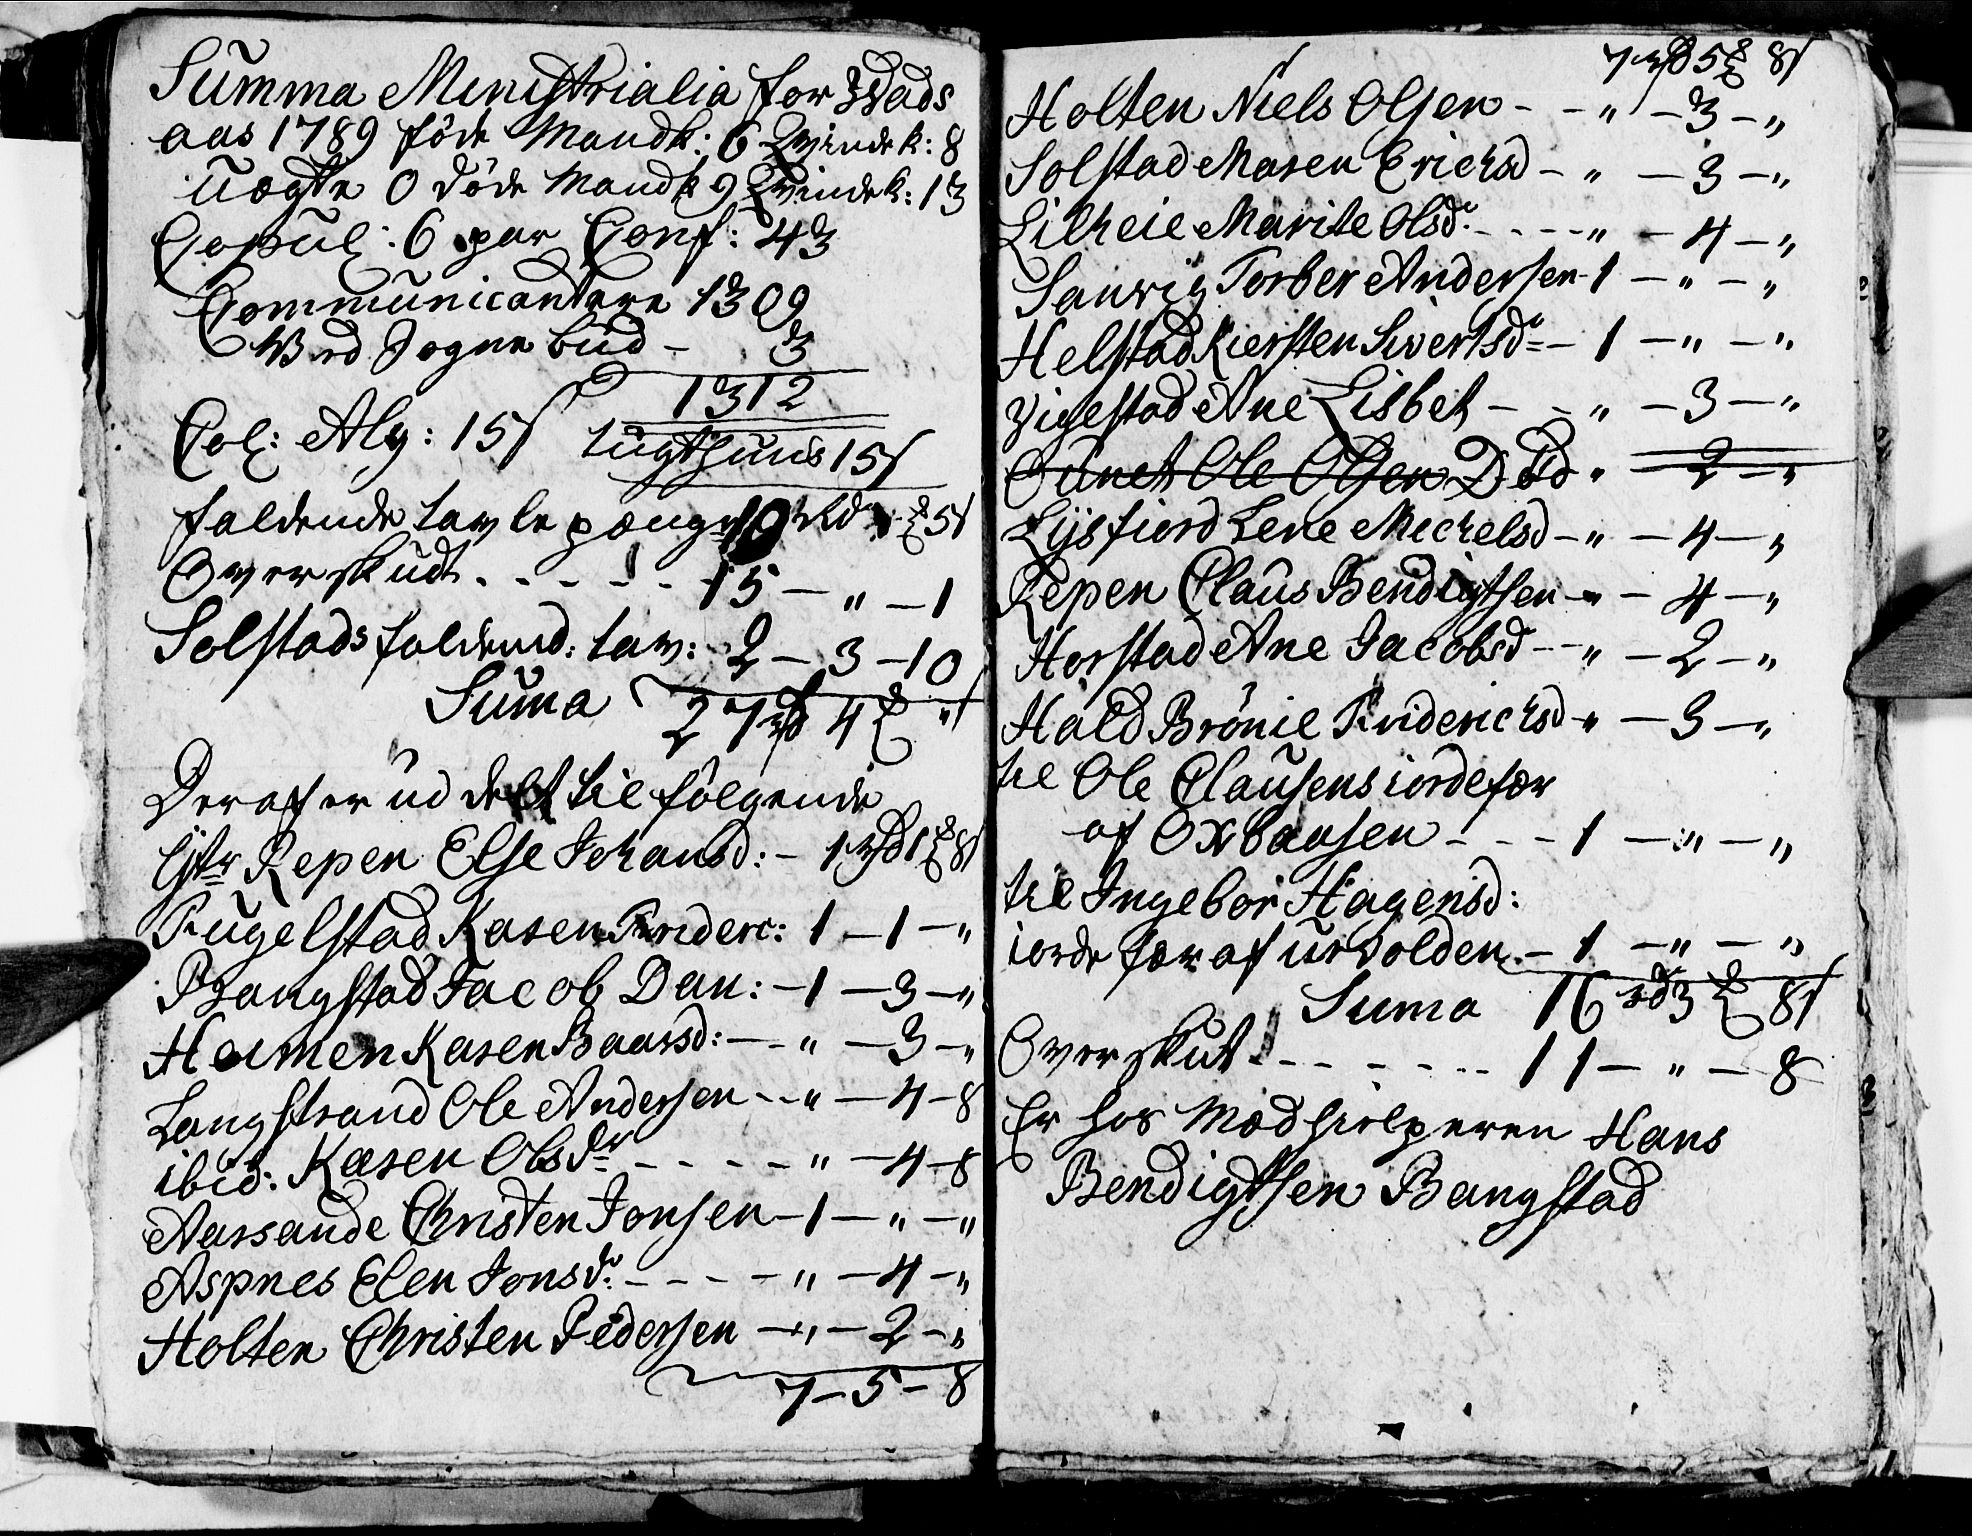 Summa Ministrialia for Vads
aas 1789 föde Mandk: 6 Qvindek: 8
Uægte 0 döde Mandk 9 Qvindek: 13
Copul: 6 par Conf: 43
Communicantere 1309
Ved Sogne bud - 3
1312
Col: Alg: 15 s tugthuus 15 s
faldende tavle penge 10 Rd 5 s
Overskudt - - - - - 15 - „ - 1
Solstads faldend: tav: 2 - 3 - 10
Suma 27 rd 4 „ s
Deraf er ud deelt til fölgende
Repen Else Johansd: - 1 rd 1 8 s
Kugelstad Karen Friderc: 1 - 1 - „
Bangstad Jacob Dan: - 1 - 3 - „
Heimen Karen Baarsd: - - „ - 3 - „
Langstrand Ole Andersen - - „ - 4 - 8
ibid: Karen Olsdr - - - - „ - 4 - 8
Aarsande Christen Jonsen - 1 - „ - „
Aspnes Elen Jonsd: - - - - „ - 4 - „
Holten Christen Pedersen - „ - 2 - „
7 - 5 - 8
7 rd 5 8 s
Holten Niels Olsen - - „ - 3 - „
Solstad Maren Erichsd - „ - 3 - „
Lilheie Marite Olsd: - - - „ - 4 - „
Sanvig Torber Andersen - 1 - „ - „
Helstad Kiersten Sivertsd - 1 - „ - „
Vigestad Ane Lisbet - - „ - 3 - „
Ole Olsen Död „ - 2 - „
Lysfiord Lene Michelsd - „ - 4 - „
Repen Claus Bendigtsen - „ - 4 - „
Horstad Ane Jacobsd - - „ - 2 - „
Hald Brönil Friderichsd - „ - 3 - „
til Ole Clausens iordefær
af Oxbaasen - - - 1 - „ - „
til Ingebor Hagensd:
iorde fær af Urvolden - 1 - „ - „
Suma 16 rd 3 8 s
Overskut - - - - - - 11 - „ - 8
Er hos Medhielperen Hans
Bendigtsen Bangstad